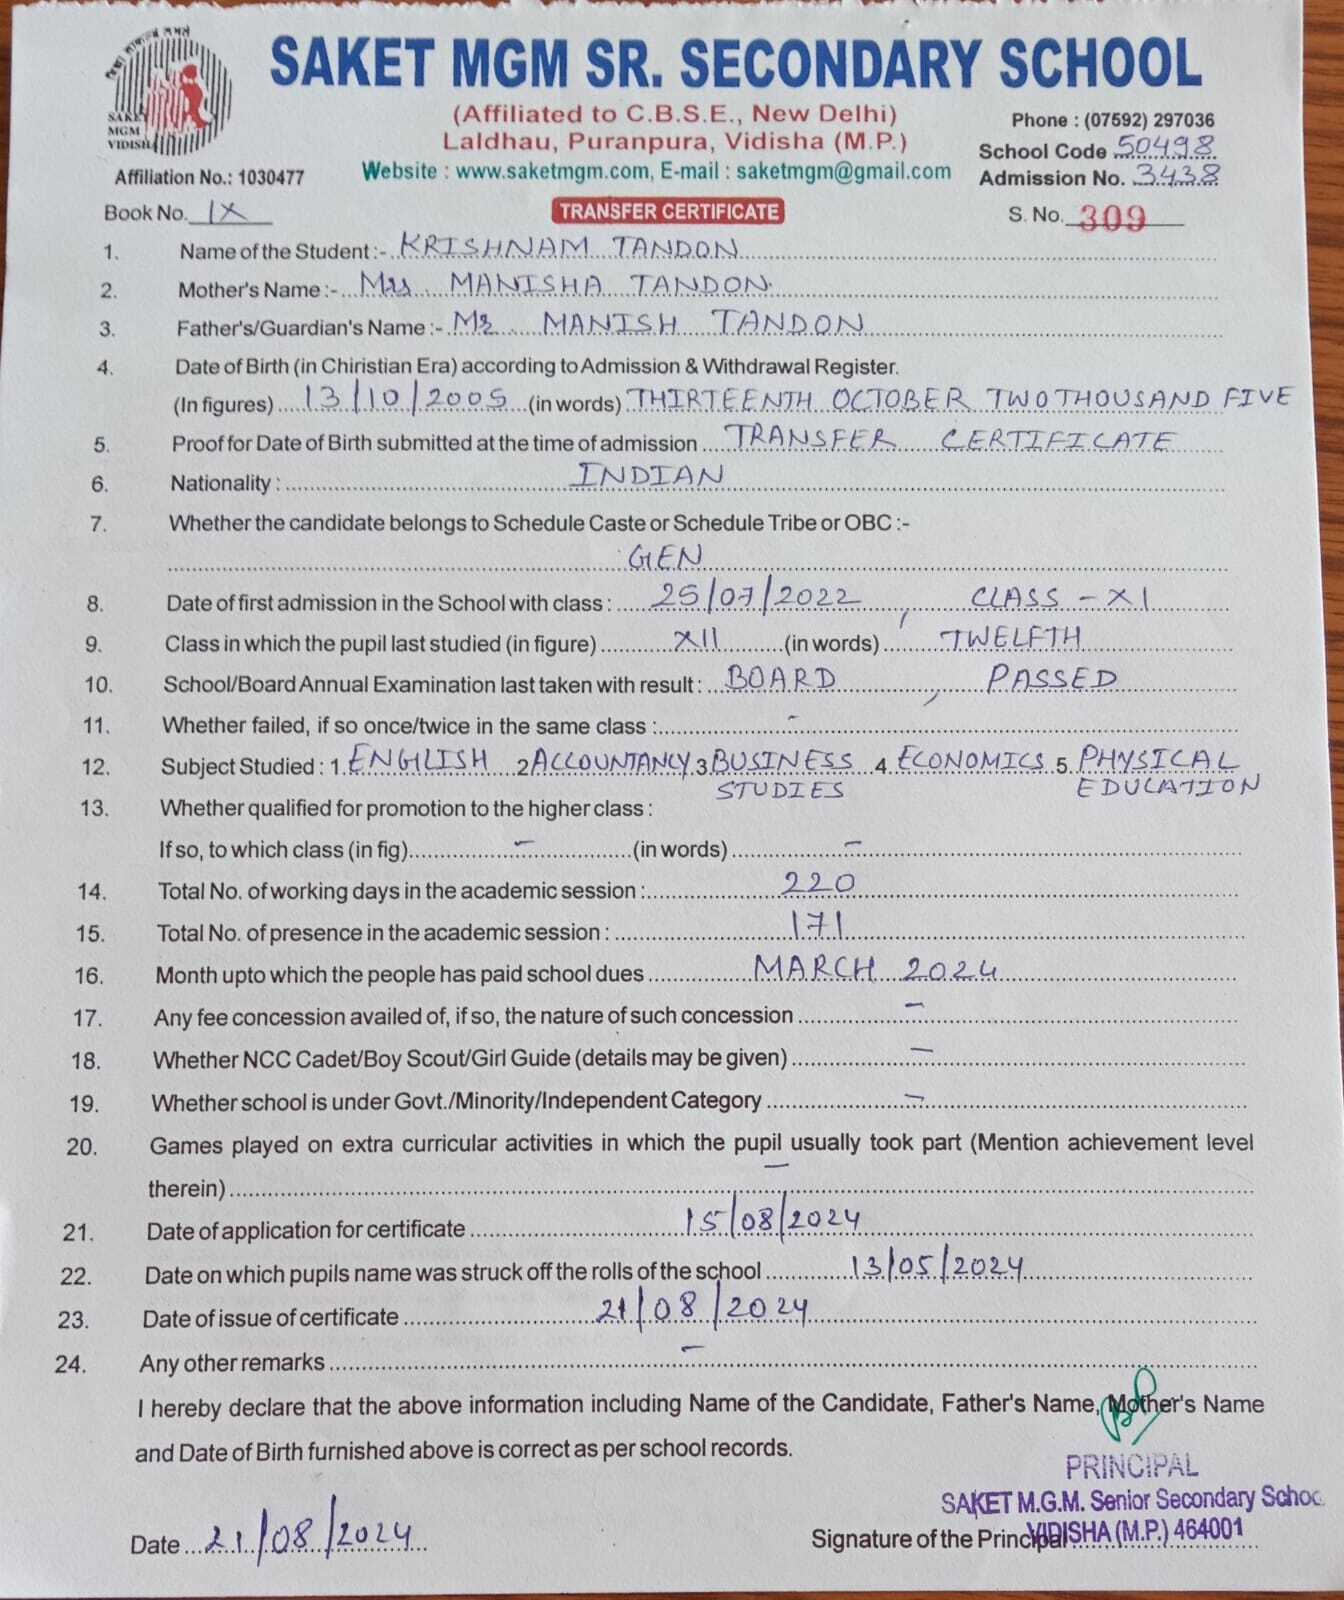 SAKET MGM SR. SECONDARY SCHOOL
(Affiliated to C.B.S.E., New Delhi)
Laldhau, Puranpura, Vidisha (M.P.)
Website : www.saketmgm.com, E-mail : saketmgm@gmail.com
SAKET
MGM
VIDISHA
Affiliation No.: 1030477
Phone : (07592) 297036
School Code 50498
Admission No. 3438
Book No. IX
TRANSFER CERTIFICATE
S. No. 309
1. Name of the Student :- KRISHNAM TANDON
2. Mother's Name :- Mrs. MANISHA TANDON
3. Father's/Guardian's Name :- Mr. MANISH TANDON
4. Date of Birth (in Chiristian Era) according to Admission & Withdrawal Register.
(In figures) 13/10/2005 (in words) THIRTEENTH OCTOBER TWO THOUSAND FIVE
5. Proof for Date of Birth submitted at the time of admission TRANSFER CERTIFICATE
6. Nationality : INDIAN
7. Whether the candidate belongs to Schedule Caste or Schedule Tribe or OBC :-
GEN
8. Date of first admission in the School with class : 25/07/2022, CLASS - XI
9. Class in which the pupil last studied (in figure) XII (in words) TWELFTH
10. School/Board Annual Examination last taken with result : BOARD, PASSED
11. Whether failed, if so once/twice in the same class : -
12. Subject Studied : 1. ENGLISH 2 ACCOUNTANCY 3 BUSINESS 4 ECONOMICS 5. PHYSICAL
STUDIES EDUCATION
13. Whether qualified for promotion to the higher class :
If so, to which class (in fig) - (in words) -
14. Total No. of working days in the academic session : 220
15. Total No. of presence in the academic session : 171
16. Month upto which the people has paid school dues MARCH 2024
17. Any fee concession availed of, if so, the nature of such concession -
18. Whether NCC Cadet/Boy Scout/Girl Guide (details may be given) -
19. Whether school is under Govt./Minority/Independent Category -
20. Games played on extra curricular activities in which the pupil usually took part (Mention achievement level
therein) -
21. Date of application for certificate 15/08/2024
22. Date on which pupils name was struck off the rolls of the school 13/05/2024
23. Date of issue of certificate 21/08/2024
24. Any other remarks -
I hereby declare that the above information including Name of the Candidate, Father's Name, Mother's Name
and Date of Birth furnished above is correct as per school records.
PRINCIPAL
SAKET M.G.M. Senior Secondary School
VIDISHA (M.P.) 464001
Date 21/08/2024
Signature of the Principal